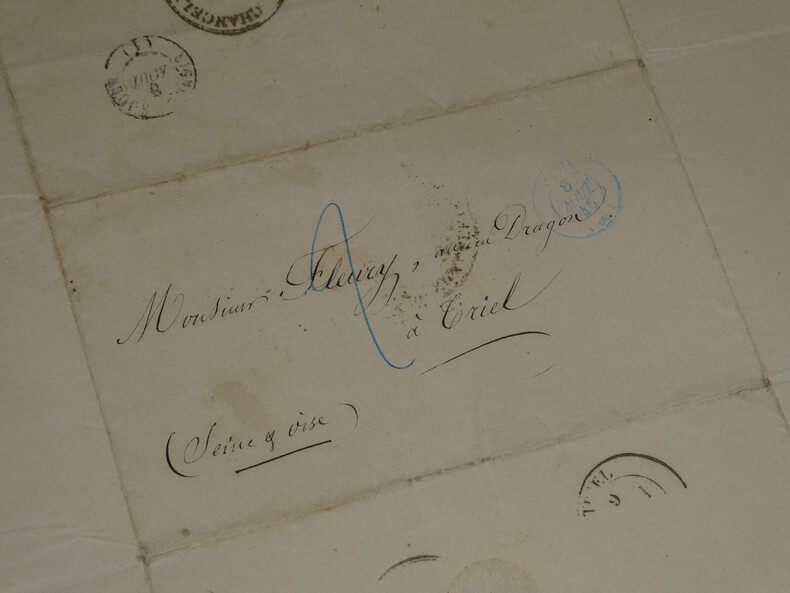 CHANCEL
(1)
8
AOUT
8
AOUT
Monsieur Fleury, ancien Dragon
à Triel
(Seine & Oise)
TRIEL
9